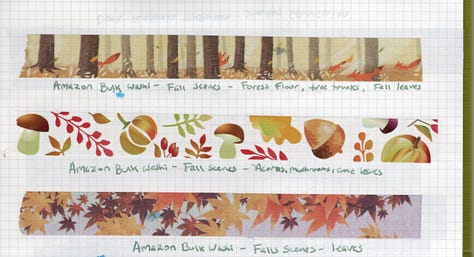 Amazon Bulk Washi - Fall Scenes - Forest Floor, tree trunks, Fall leaves
Amazon Bulk Washi - Fall Scenes - Acorns, mushrooms, and leaves
Amazon Bulk Washi - Falls Scenes - leaves